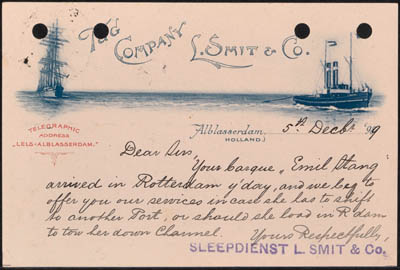 Tug Company L. Smit & Co.
Alblasserdam, 5th Decbr 99
(HOLLAND.)
TELEGRAPHIC
ADDRESS
„LELS-ALBLASSERDAM."
Dear Sirs,
Your barque „Emil Stang"
arrived in Rotterdam y'day, and we beg to
offer you our services in case she has to shift
to another Port, or should she load in R'dam
to tow her down Channel.
Yours Respectfully,
SLEEPDIENST L. SMIT & Co.